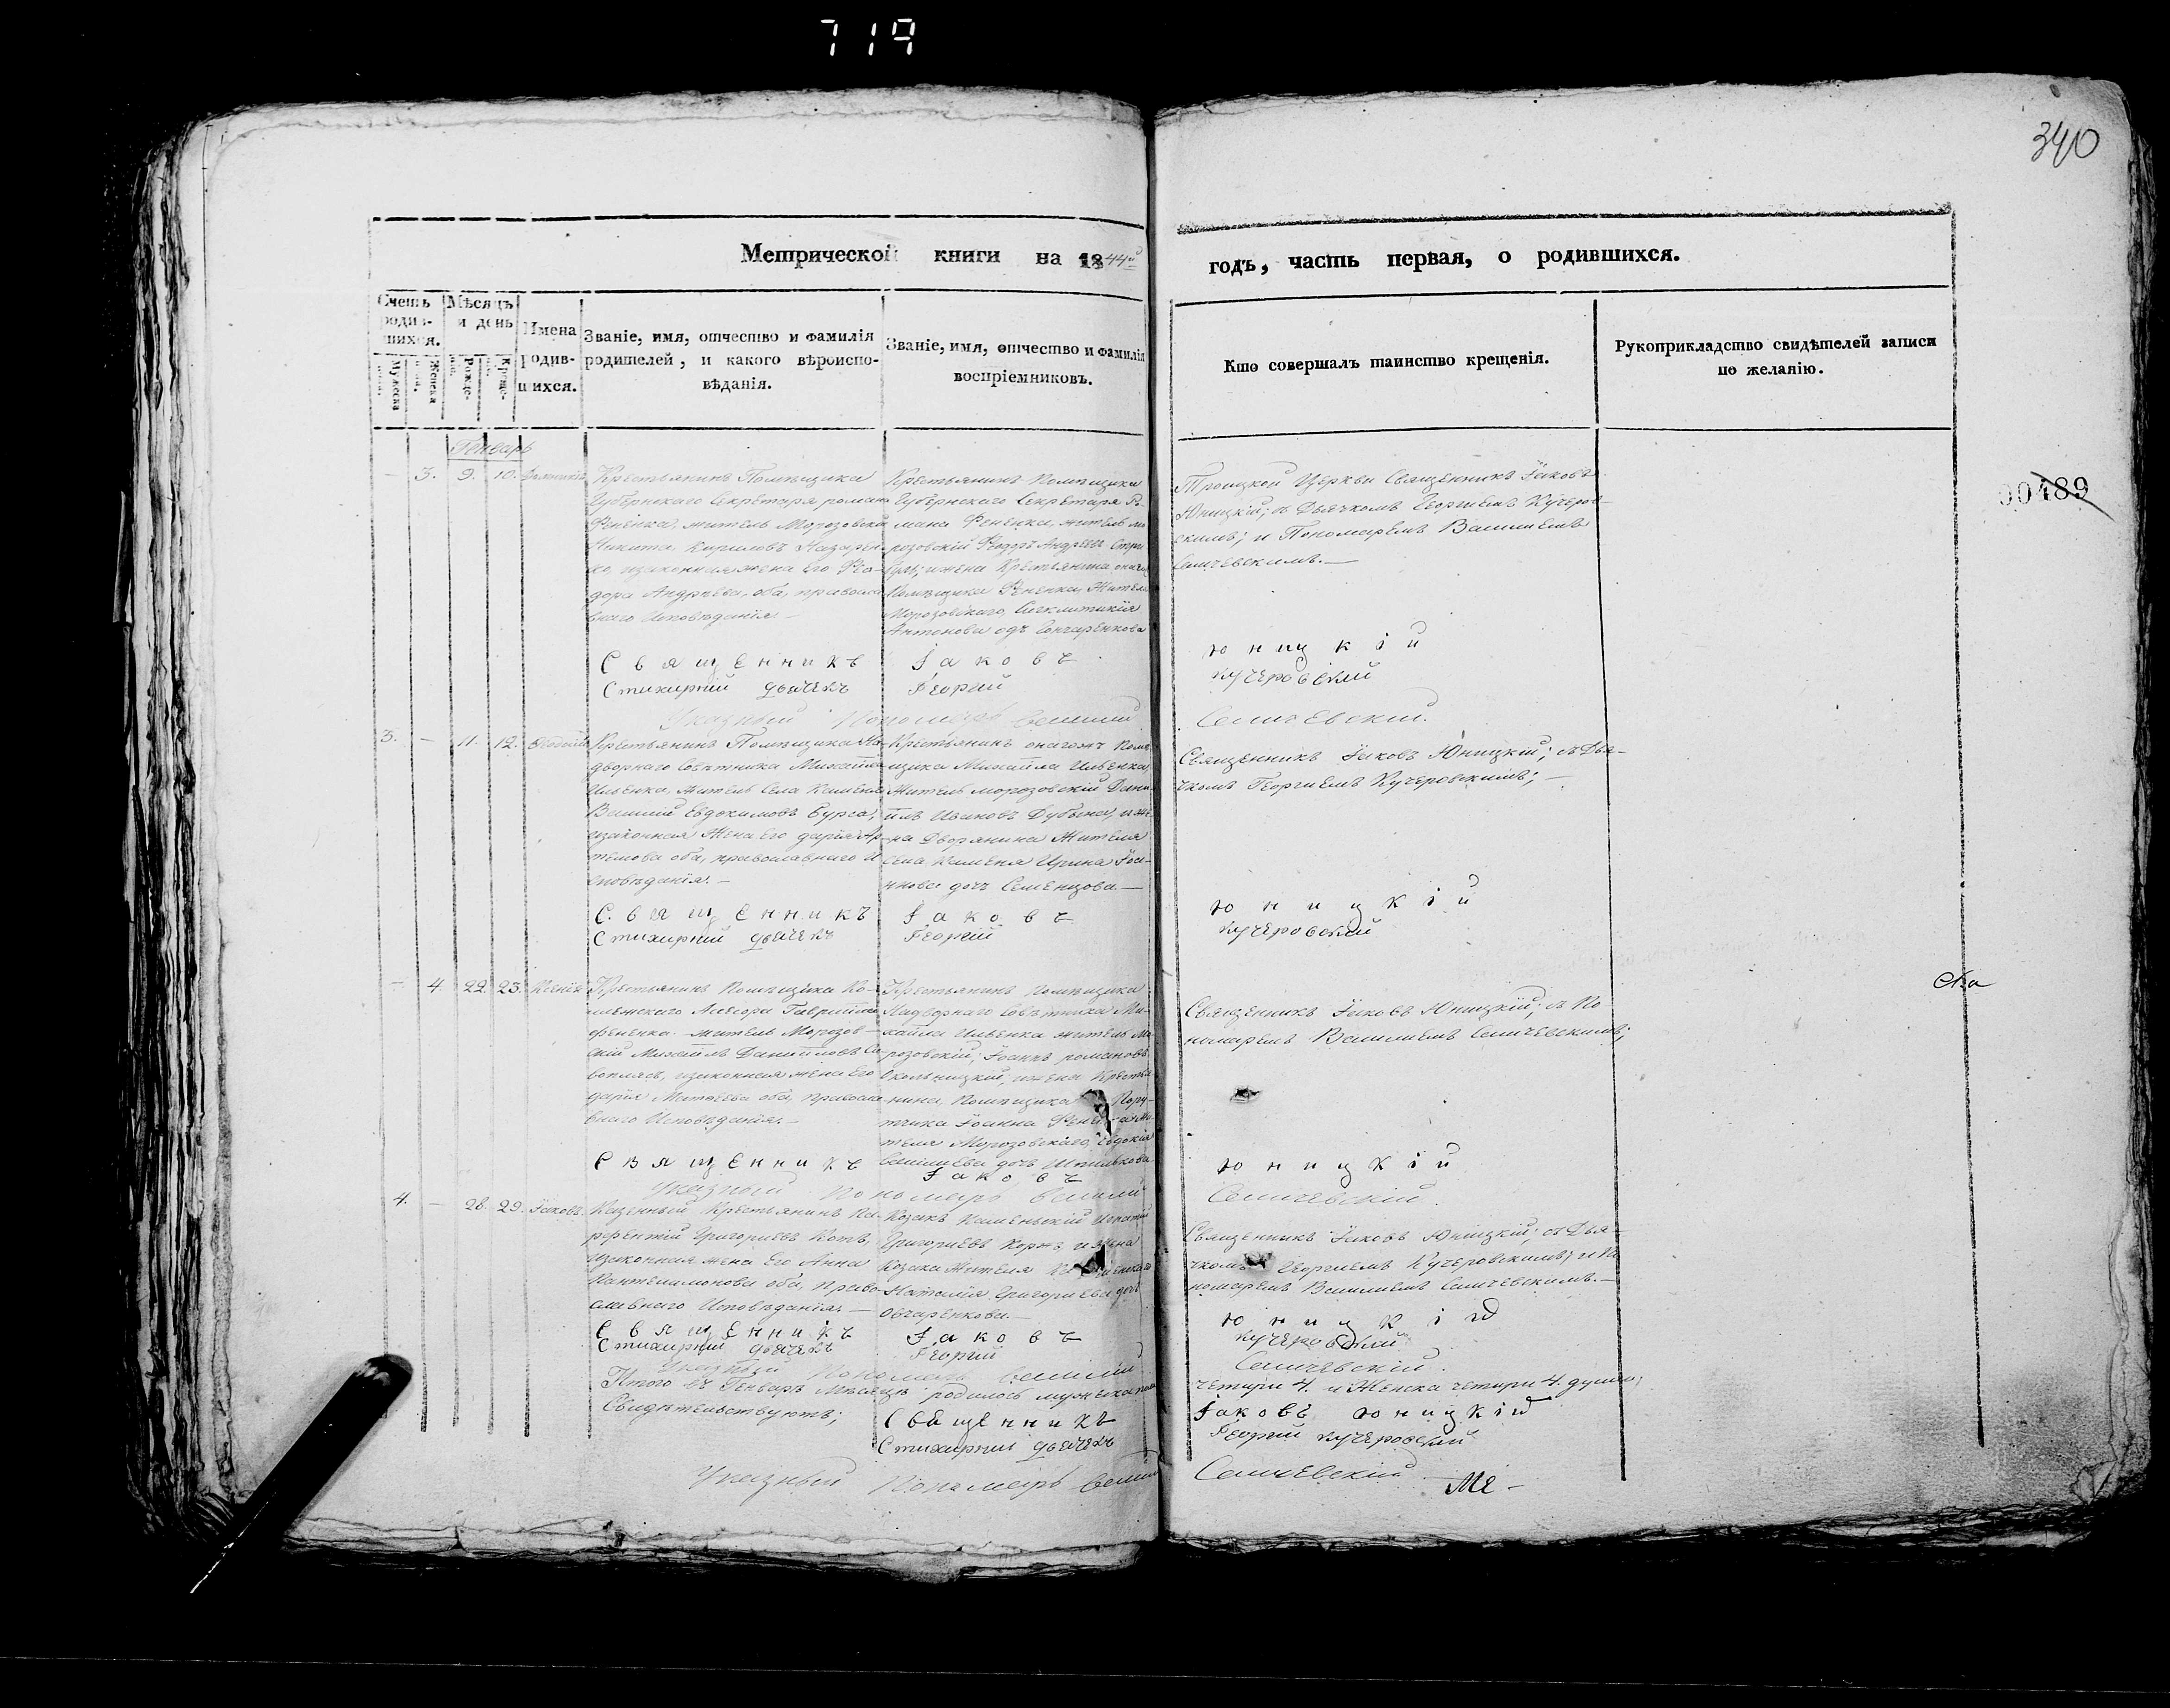 719
340
Метрической книги на 1844й
годъ, часть первая, о родившихся.
Счетъ родив-шихся.
Мужеска
Женска
Мѣсяцъ и день
Рожде-
Креще-
Имена родив-шихся.
Званіе, имя, отчество и фамилія
родителей, и какого вѣроиспо-
вѣданія.
Званіе, имя, отчество и фамилія
воспріемниковъ.
Кто совершалъ таинство крещенія.
Рукоприкладство свидѣтелей записи
по желанію.
00489
Генварь
— 3. 9. 10.
Крестьянинъ Помѣщика
Губернскаго Секретаря романа
Фененка, житель Морозовски
Никита Кириловъ Назарен
ко, изаконная жена Его Фео-
дора Андреева, оба, правосла
внаго Исповѣданія. —
Крестьянинъ Помѣщика
Губернскаго Секретаря Ро
мана Фененка, житель мо
розовскій Феодоръ Андреевъ
Помѣщика Фененка Жителя
Морозовскаго, Сигклитикія
Антонова дочь Гончаренкова
Троицкой Церкви Священникъ Іаковъ
Юницкій; съ Дьячкомъ Георгіемъ Кучеров-
скимъ; и Пономаремъ Василіемъ
Самчевскимъ. —
Священникъ Іаковъ Юницкій
Стихирный дьячекъ Георгій Кучеровскій
Указный Пономарь Василій Самчевскій.
3. — 11. 12.
Крестьянинъ Помѣщика На-
дворнаго Совѣтника Михаила
Ильенка, житель Села Каменя
Василій Евдокимовъ Бурса,
изаконная Жена Его дарія Ар-
темова оба, православнаго И
сповѣданія. —
Крестьянинъ онагожъ Помѣ
щика Михаила Ильенка,
Житель морозовскій Дани
илъ Ивановъ Дубина, и же
на Дворянина Жителя
Села Каменя Ирина Іоа-
ннова дочь Семенцова. —
Священникъ Іаковъ Юницкій; съ Дья-
чкомъ Георгіемъ Кучеровскимъ; —
Священникъ Іаковъ Юницкій
Стихирный дьячекъ Георгій Кучеровскій
— 4. 22. 23. Ксенія
Крестьянинъ Помѣщика Ко-
лежского Асесора Гавріила
фененка. житель Морозов-
скій Михаилъ Даниловъ Са-
воплясъ, изаконная жена Его
дарія Матвѣева оба, правосла
внаго Исповѣданія. —
Крестьянинъ Помѣщика
Надворнаго Совѣтника Ми-
хаила Ильенка житель Мо
розовскій, Іоаннъ романовъ
Окольницкій, ижена Крестья
нина, Помѣщика Пору-
тчика Іоанна
теля Морозовскаго, Евдокія
Священникъ Іаковъ Юницкій; съ По
номаремъ Василіемъ Самчевскимъ;
Священникъ Іаковъ Юницкій
Указный Пономарь Василій Самчевскій.
4. — 28. 29. Іаковъ.
Казенный Крестьянинъ Ла-
рфентій Григоріевъ Котъ,
изаконная жена Его Анна
Пантелимонова оба, Право
славнаго Исповѣданія. —
Козакъ Каменьскій Игнатій
Григоріевъ Коржъ и жена
Козака Жителя
Наталія Григоріева дочь
Овчаренкова. —
Священникъ Іаковъ Юницкій; съ Дья-
чкомъ Георгіемъ Кучеровскимъ; и По
номаремъ Василіемъ Самчевскимъ. —
Священникъ Іаковъ Юницкій
Стихирный дьячекъ Георгій Кучеровскій
Указный Пономарь Василій Самчевскій.
Итого въ Генварь Мѣсяцъ родилось мужеска пола четыри 4. и Женска четыри 4. души;
Свидѣтельствуютъ;
Священникъ Іаковъ Юницкій
Стихирный дьячекъ Георгій Кучеровскій
Указный Пономарь Василій Самчевскій
Ме-